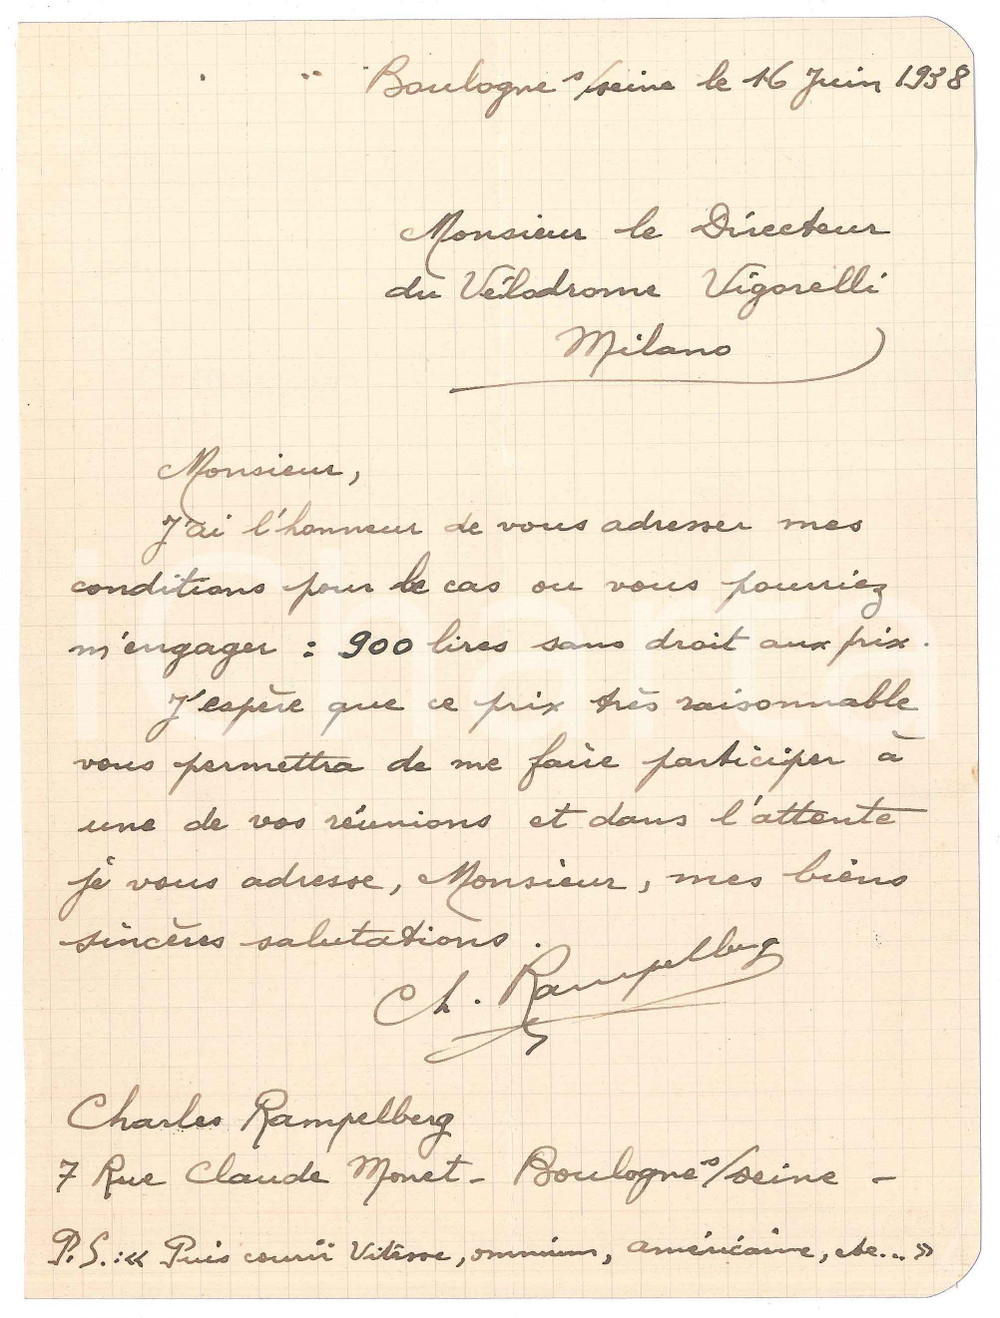 Boulogne s/seine le 16 Juin 1938
Monsieur le Directeur
du Vélodrome Vigorelli
Milano
Monsieur,
J'ai l'honneur de vous adresser mes
conditions pour le cas ou vous pourriez
m'engager : 900 lires sans droit aux prix.
J'espère que ce prix très raisonnable
vous permettra de me faire participer à
une de vos réunions et dans l'attente
je vous adresse, Monsieur, mes biens
sincères salutations.
Ch. Rampelberg
Charles Rampelberg
7 Rue Claude Monet - Boulogne s/seine -
P.S.: « Puis courir Vitesse, omnium, américaine, etc... »